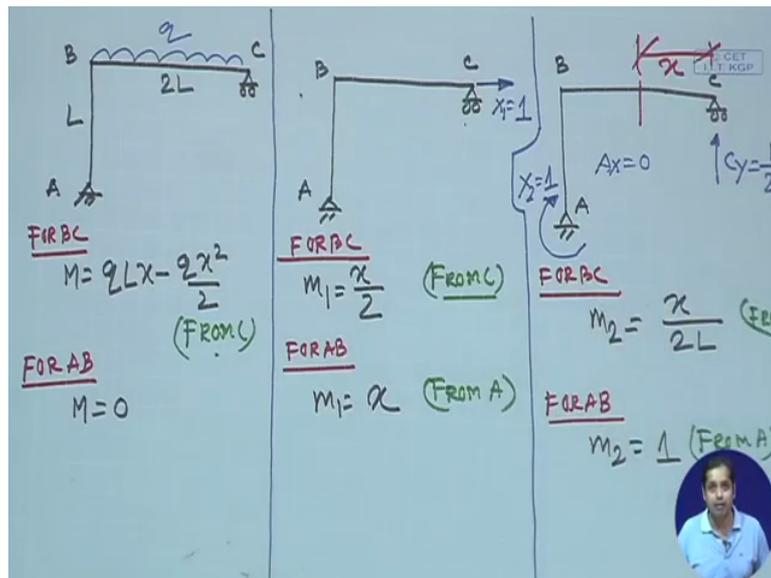 q
B
C
2L
L
A
FOR BC
M = qLx - qx²/2
(FROM C)
FOR AB
M = 0
B
C
X₁=1
A
FOR BC
m₁ = x/2
(FROM C)
FOR AB
m₁ = x
(FROM A)
CET
I.I.T. KGP
x
B
C
X₂=1
Ax=0
A
FOR BC
m₂ = x/2L
FOR AB
m₂ = 1 (FROM A)